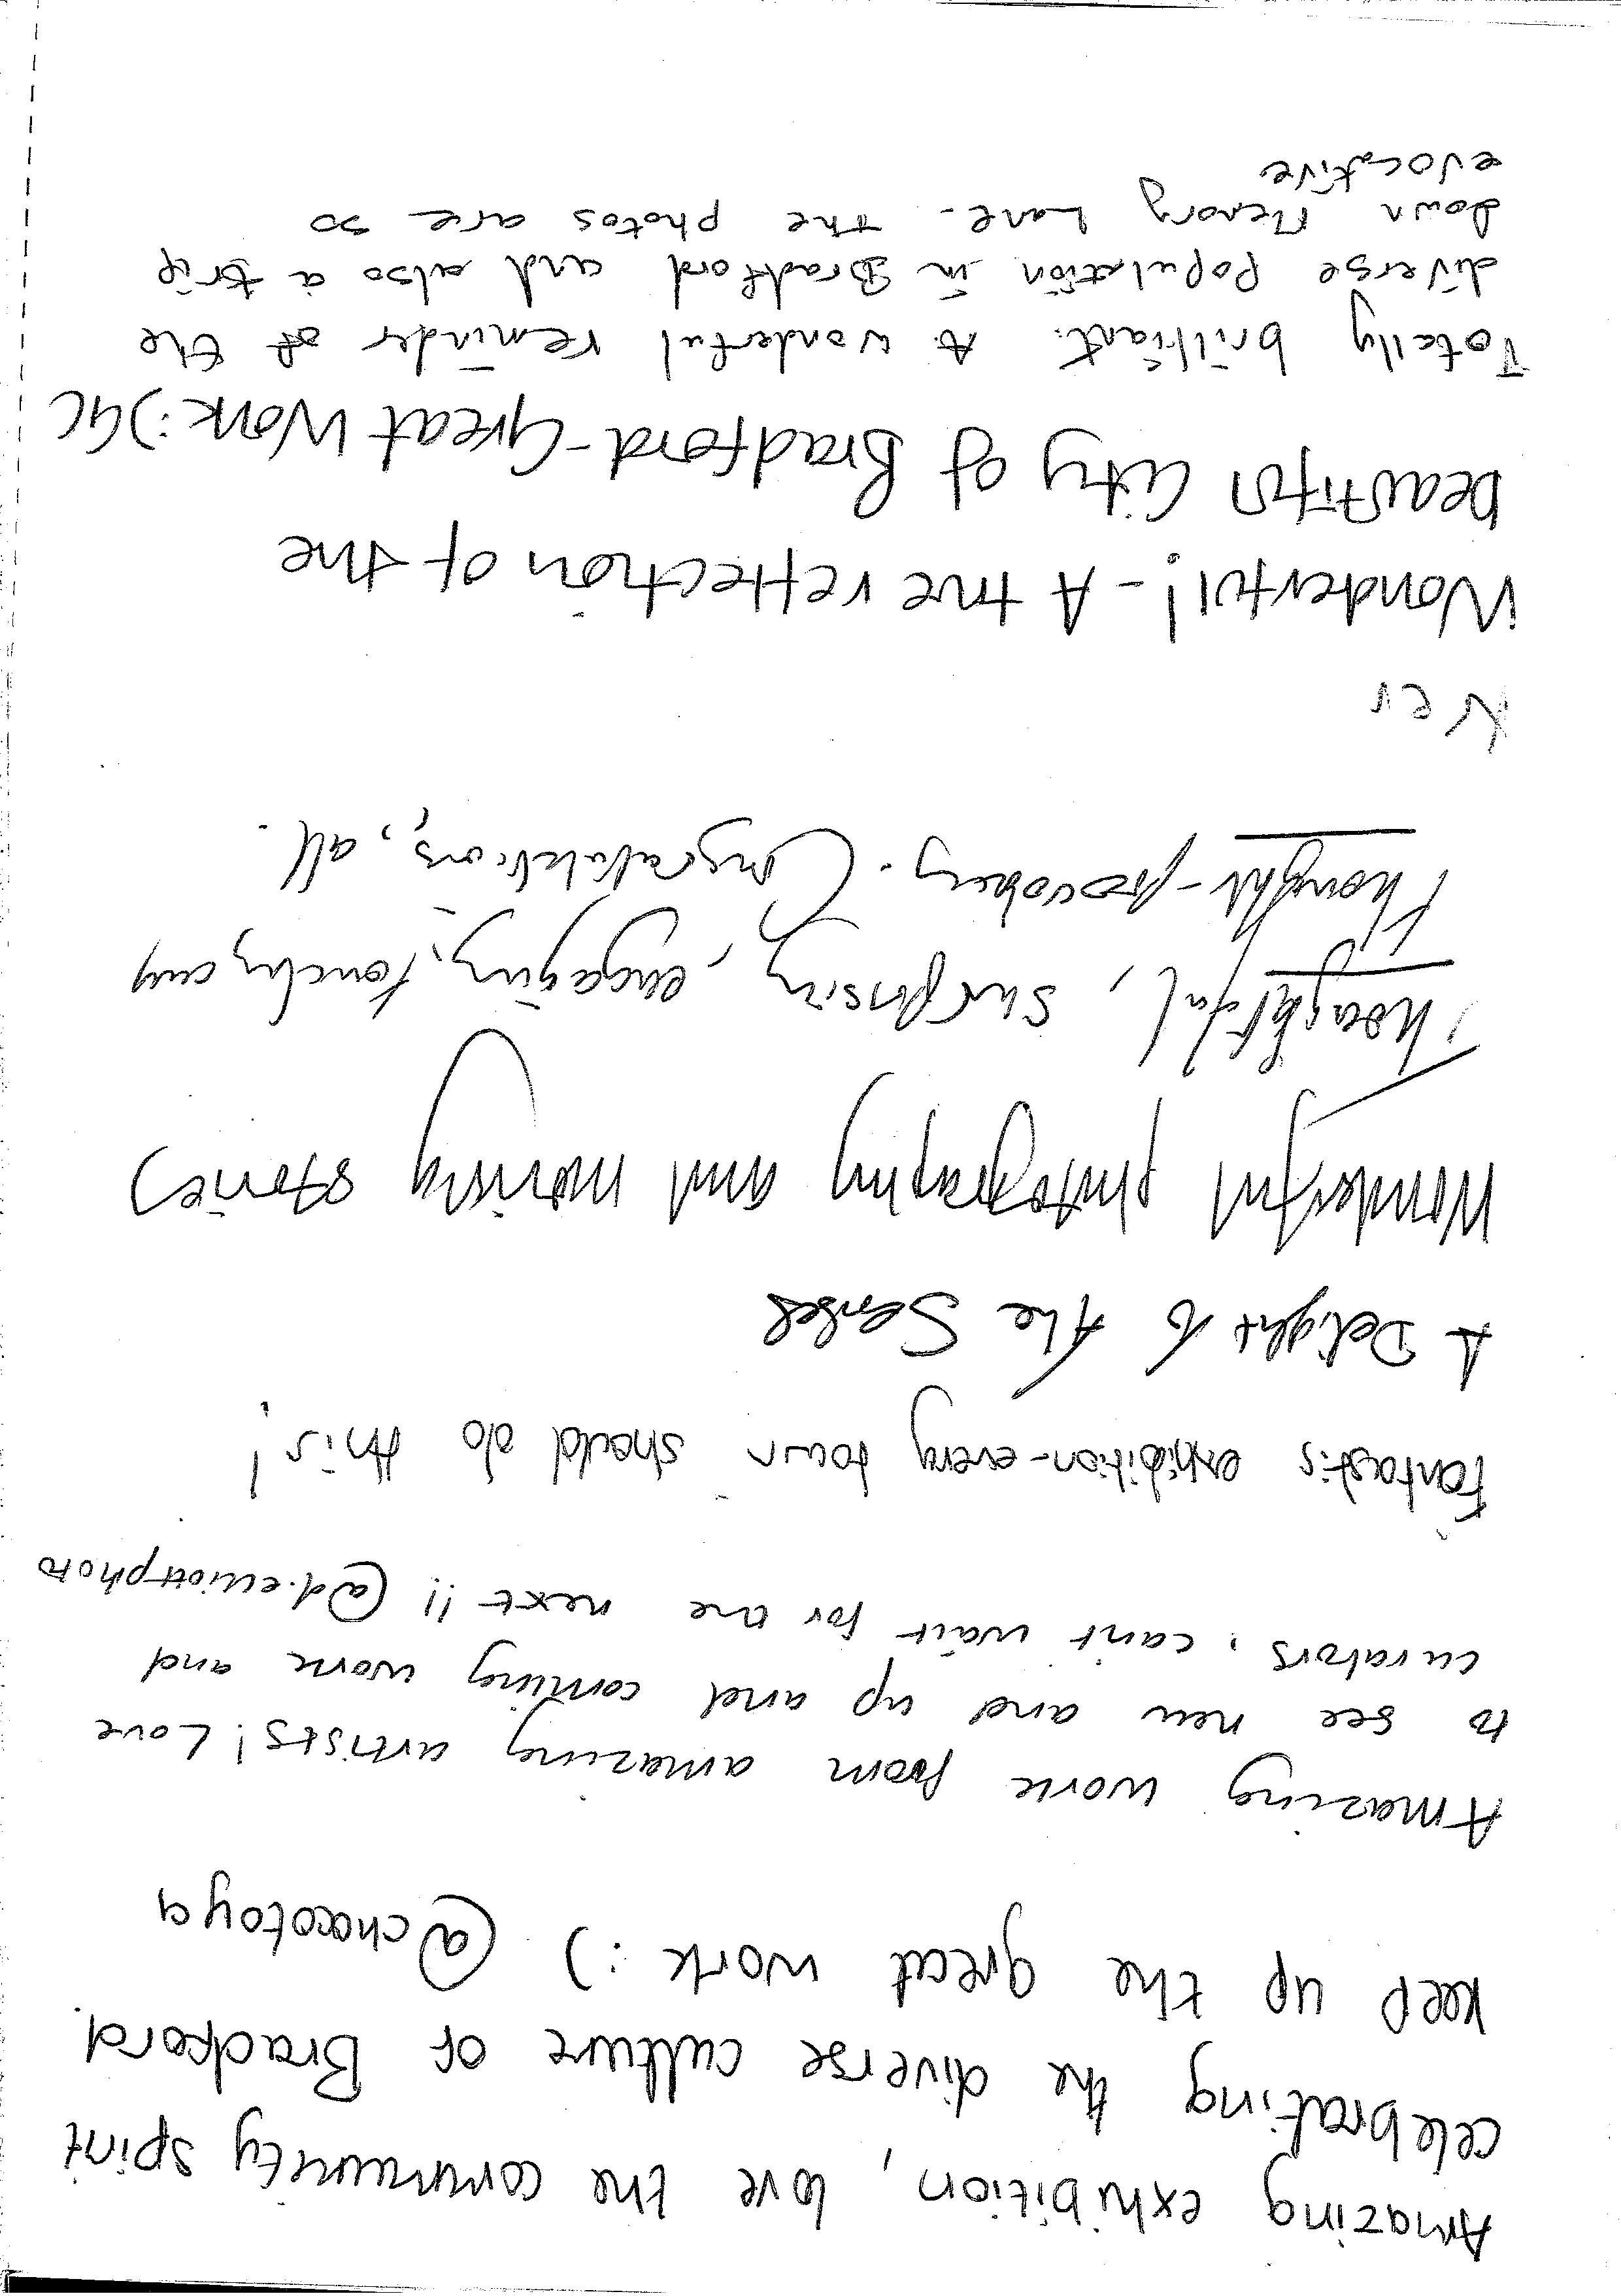 Amazing exhibition, love the community spirit
celebrating the diverse culture of Bradford.
keep up the great work :) @chocotoya
Amazing work from amazing artists! Love
to see new and up and coming work and
curators, can't wait for the next!! @d.elliottphoto
Fantastic exhibition - every town should do this!
A Delight to the Senses
Wonderful photography and moving stories
Thoughtful, surprising, engaging, touching
thought-provoking. Congratulations, all.
Wonderful! - A true reflection of the
beautiful City of Bradford - Great Work :) GC
Totally brilliant. A wonderful reminder of the
diverse population in Bradford and also a trip
down Memory Lane - The photos are so
evocative